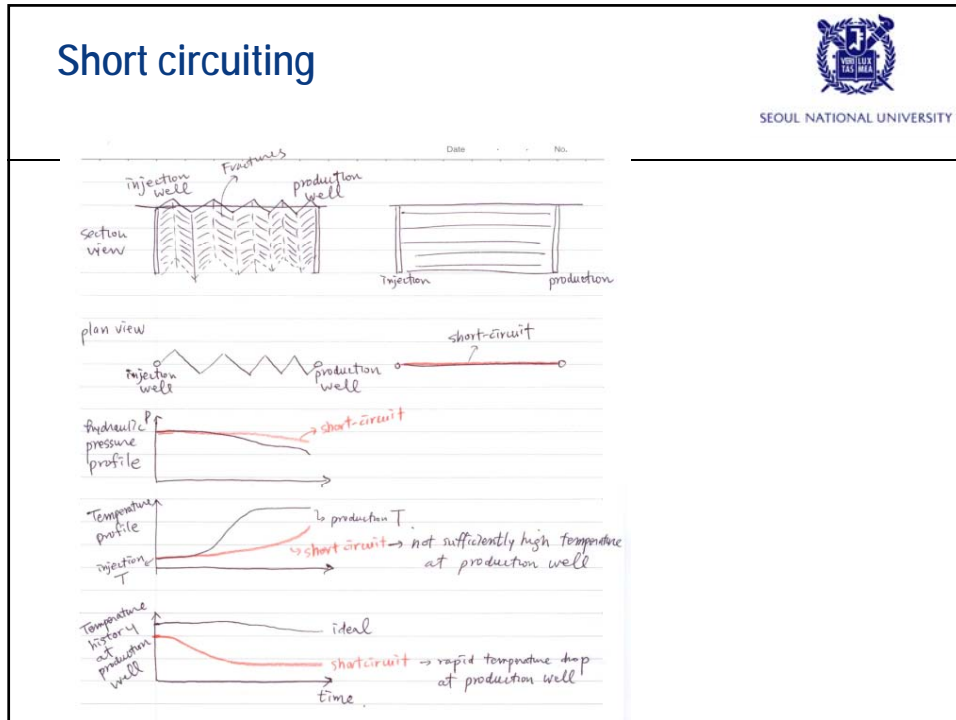 Short circuiting
VERI LUX
TAS MEA
SEOUL NATIONAL UNIVERSITY
Date . . No.
injection
well
Fractures
production
well
section
view
injection
production
plan view
short-circuit
injection
well
production
well
hydraulic
pressure
profile
P
short-circuit
Temperature
profile
injection
T
production T
short circuit → not sufficiently high temperature
at production well
Temperature
history
at
production
well
ideal
shortcircuit → rapid temperature drop
at production well
time